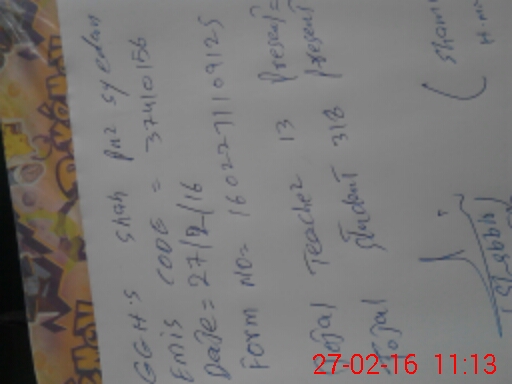 GGH.S Shah pur syedan
Emis CODE = 37410156
Date = 27/2/16
Form NO= 16022711109125
Total Teacher 13 Present=
Total Student 318 present
(Sham
H.m
27-02-16 11:13